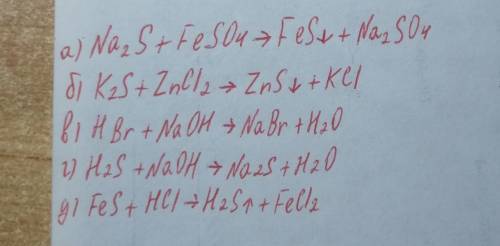 а) Na₂S + FeSO₄ → FeS↓ + Na₂SO₄
б) K₂S + ZnCl₂ → ZnS↓ + KCl
в) HBr + NaOH → NaBr + H₂O
г) H₂S + NaOH → Na₂S + H₂O
д) FeS + HCl → H₂S↑ + FeCl₂